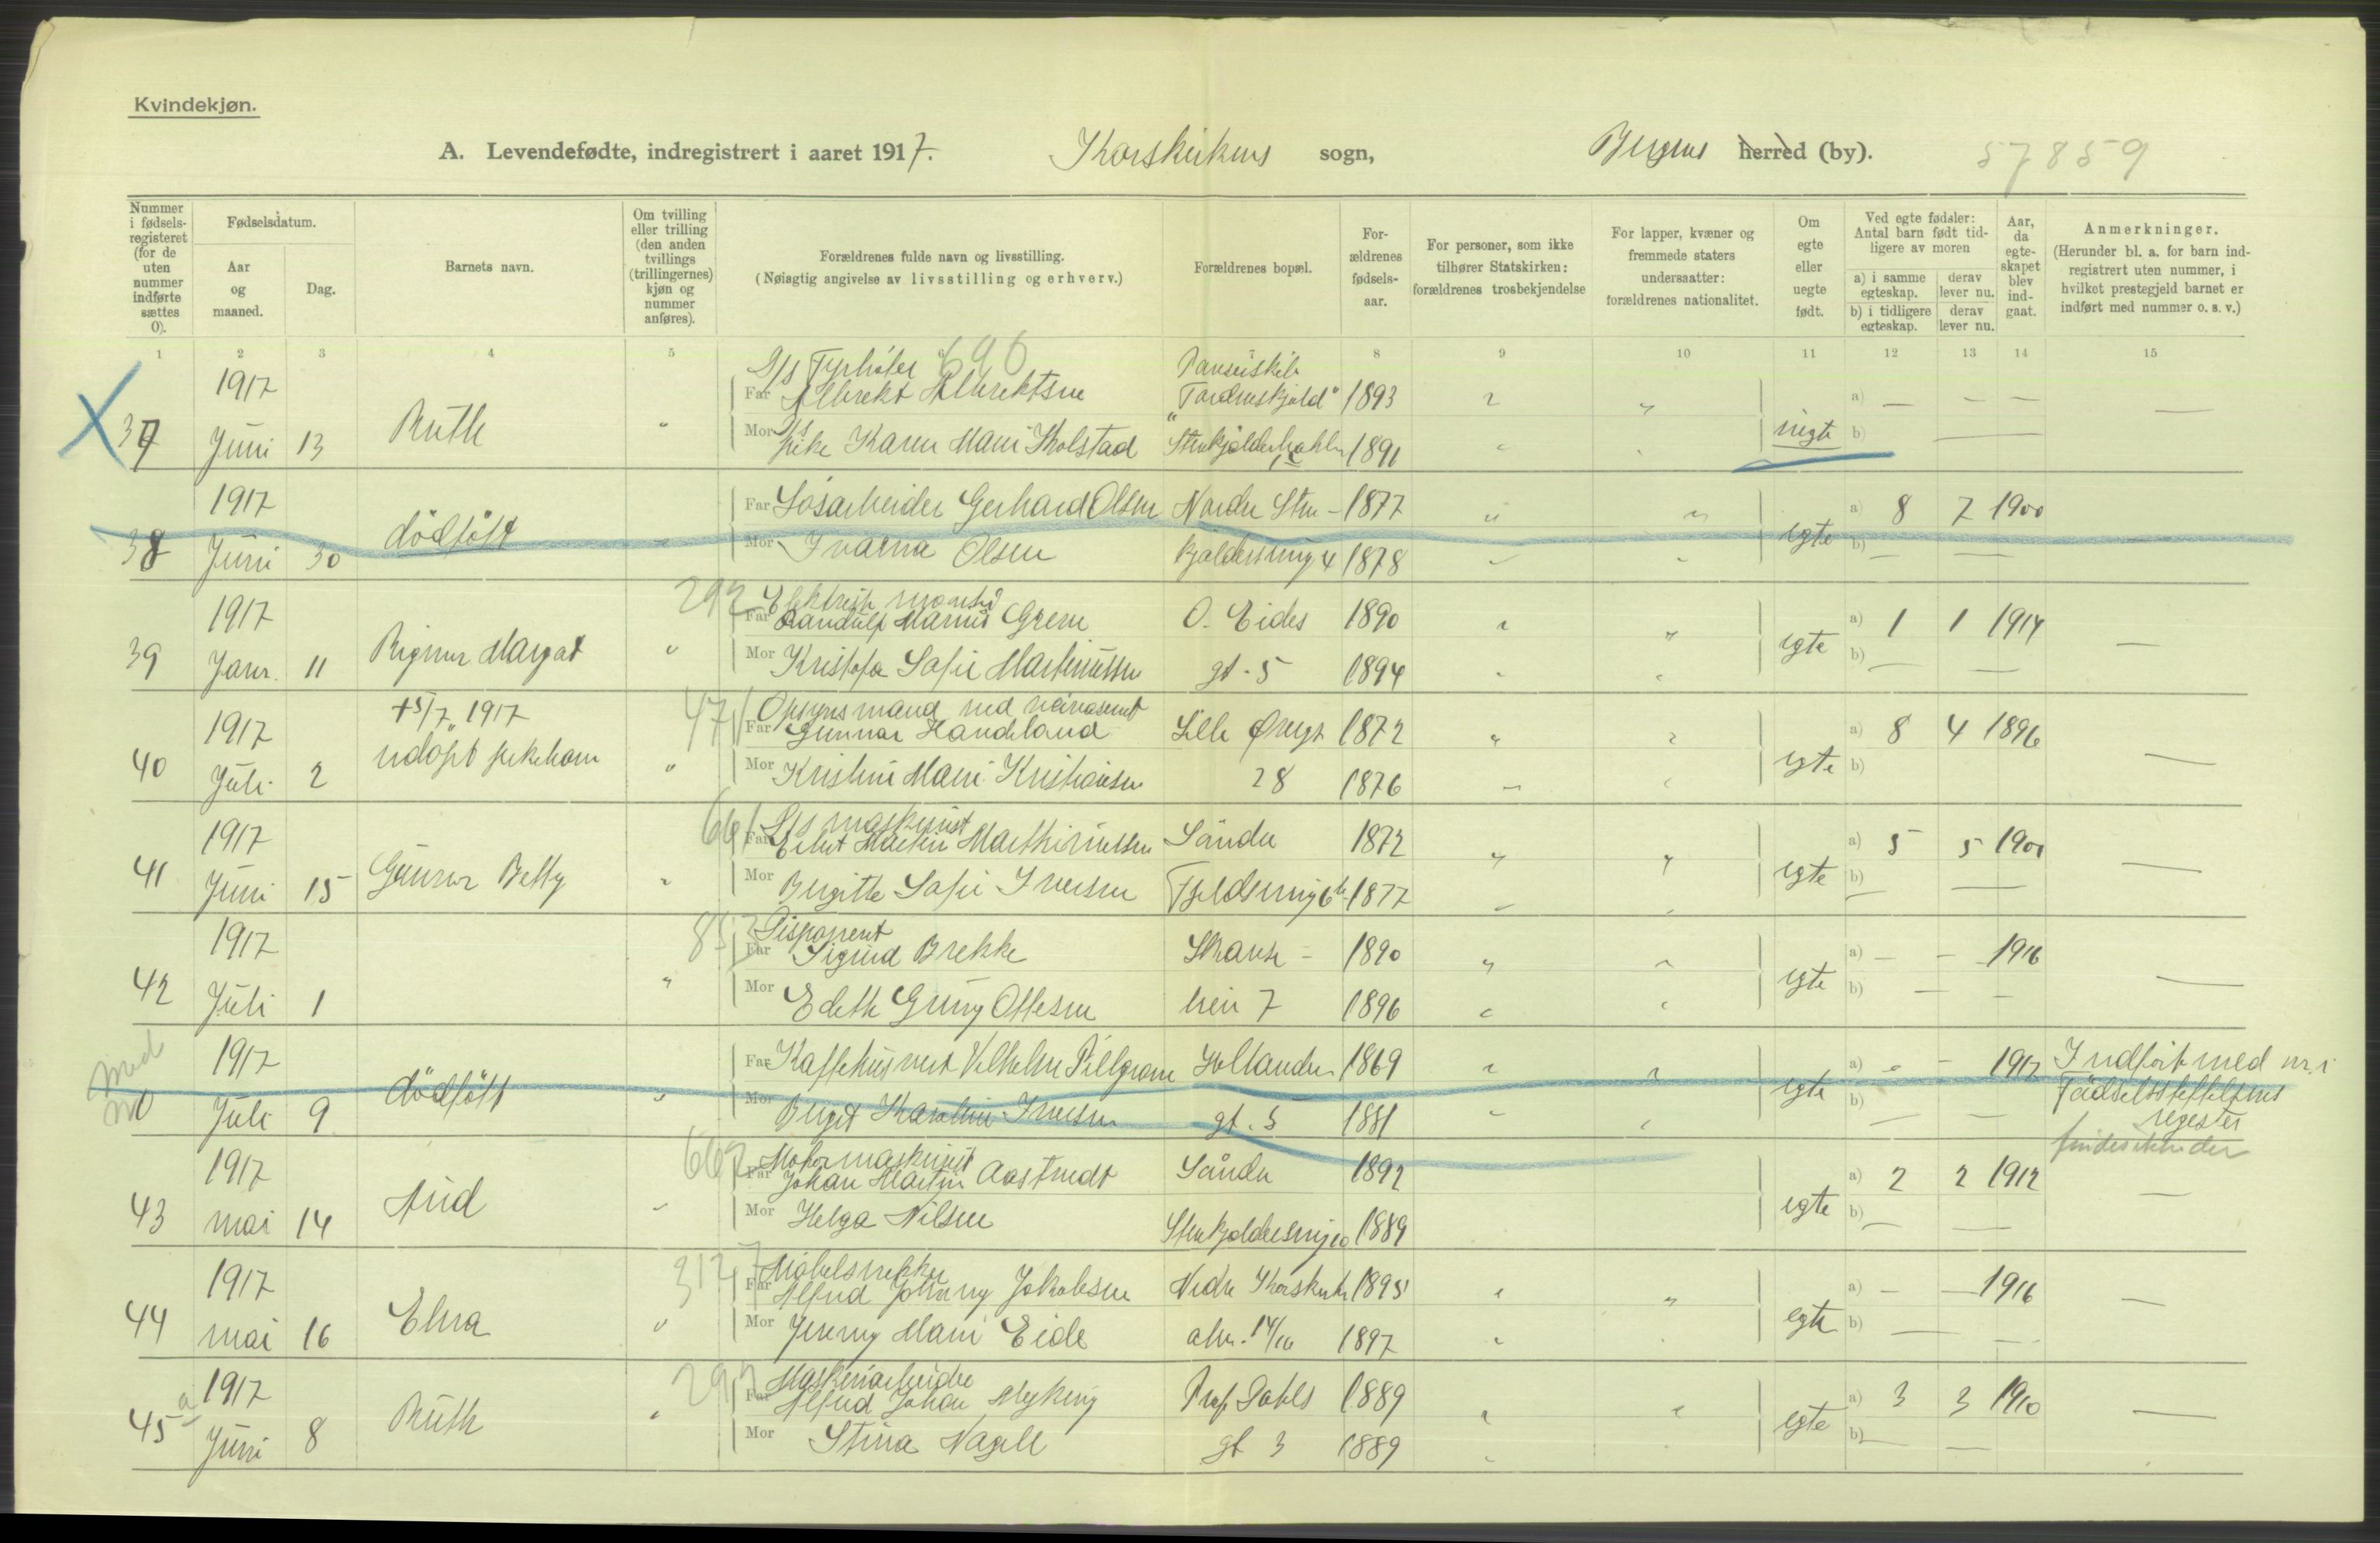 Kvindekjøn.
A. Levendefødte, indregistrert i aaret 1917. Korskirkens sogn, Bergens herred (by). 57859
Nummer i fødselsregisteret (for de uten nummer indførte sættes 0).
Fødselsdatum.
Aar og maaned.
Dag.
Barnets navn.
Om tvilling eller trilling (den anden tvillings (trillingernes) kjøn og nummer anføres).
Forældrenes fulde navn og livsstilling.
(Nøiagtig angivelse av livsstilling og erhverv.)
Forældrenes bopæl.
Forældrenes fødselsaar.
For personer, som ikke tilhører Statskirken: forældrenes trosbekjendelse
For lapper, kvæner og fremmede staters undersaatter: forældrenes nationalitet.
Om egte eller uegte født.
Ved egte fødsler: Antal barn født tidligere av moren
a) i samme egteskap. derav lever nu.
b) i tidligere egteskap. derav lever nu.
Aar, da egteskapet blev indgaat.
Anmerkninger.
(Herunder bl. a. for barn indregistrert uten nummer, i hvilket prestegjeld barnet er indført med nummer o. s. v.)
1 2 3 4 5 6 8 9 10 11 12 13 14 15
D/s Fyrbøter 690 Panserskib
1917 Far Albrekt Albrektsen "Tordenskjold" 1893 a) — — —
37 Juni 13 Ruth " Mor pike Karen Marie Kolstad 1891 uegte b) —
1917 Far Løsarbeider Gerhard Olsen Nordre Sten- 1877 a) 8 7 1900
38 Juni 30 dødfødt Mor Ivarna Olsen kjeldersmug 4 1878 egte b) — —
292 Elektrisk montør
1917 Far Randulf Marius Grene O. Eides 1890 a) 1 1 1914
39 Janr. 11 Rigmor Margot " Mor Kristofa Sofie Martinussen gt. 5 1894 egte b) — —
+5/7 1917 471 Opsynsmand ved veivæsenet
1917 Far Gunnar Handeland Lille Øvregt 1872 a) 8 4 1896
40 Juli 2 udøpt pikebarn " Mor Kristine Marie Kristiansen 28 1876 egte b) —
661 D/s maskinist
1917 Far Martin Søndre 1872 a) 5 5 1900
41 Juni 15 Gunvor Betty Mor Birgitte Sofie Iversen 1877 egte b) — —
853 Disponent
1917 Far Sigurd Brekke Kalfar- 1890 a) — — 1916
42 Juli 1 " Mor Edith Gung Ottesen veien 7 1896 egte b) — —
1917 Far Kaffehusvert Vilhelm Pillgram Hollender 1869 a) — — 1917 Indført med nr. i
0 Juli 9 dødfødt " Mor Birgit Karoline Iversen gt. 5 1881 egte b) — — Fødselsstiftelsens
register
findes ikke der
662 Motormaskinist
1917 Far Johan Martin Aastvedt Søndre 1892 a) 2 2 1912
43 mai 14 Aud Mor Helga Nilsen Stenkjeldersmug 10 1889 egte b) — —
Møbelsnekker
1917 Far Alfred Johnny Jakobsen Nedre Korskirke 1895 a) — — 1916
44 mai 16 Elna " Mor Jenny Marie Eide alm. 14/16 1897 egte b) — —
Maskinarbeider
1917 Far Alfred Johan Myking Prof. Dahls 1889 a) 3 3 1910
45 a Juni 8 Ruth " Mor Stina Nagell gt 3 1889 egte b) — —